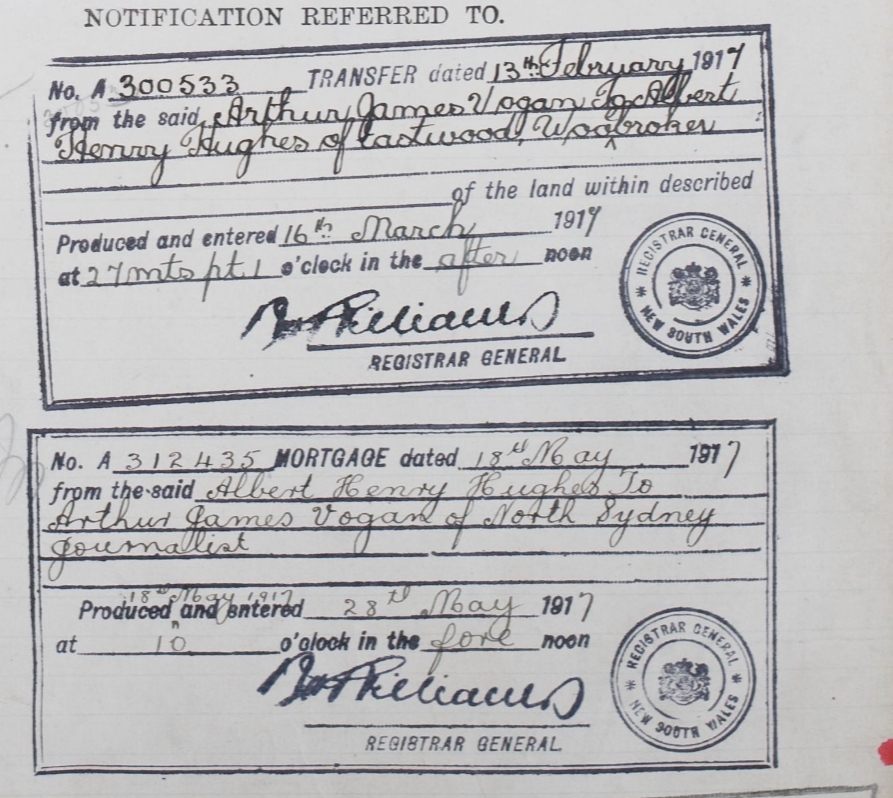 NOTIFICATION REFERRED TO.
No. A 300533 TRANSFER dated 13th February 1917
from the said Arthur James Vogan To Albert
Henry Hughes of Eastwood, Woolbroker
of the land within described
Produced and entered 16th March 1917
at 27 mts pt. 1 o'clock in the after noon
REGISTRAR GENERAL
REGISTRAR GENERAL
NEW SOUTH WALES
No. A 312435 MORTGAGE dated 18th May 1917
from the said Albert Henry Hughes To
Arthur James Vogan of North Sydney
Journalist
18th May 1917
Produced and entered 28th May 1917
at 10 o'clock in the fore noon
REGISTRAR GENERAL
REGISTRAR GENERAL
NEW SOUTH WALES